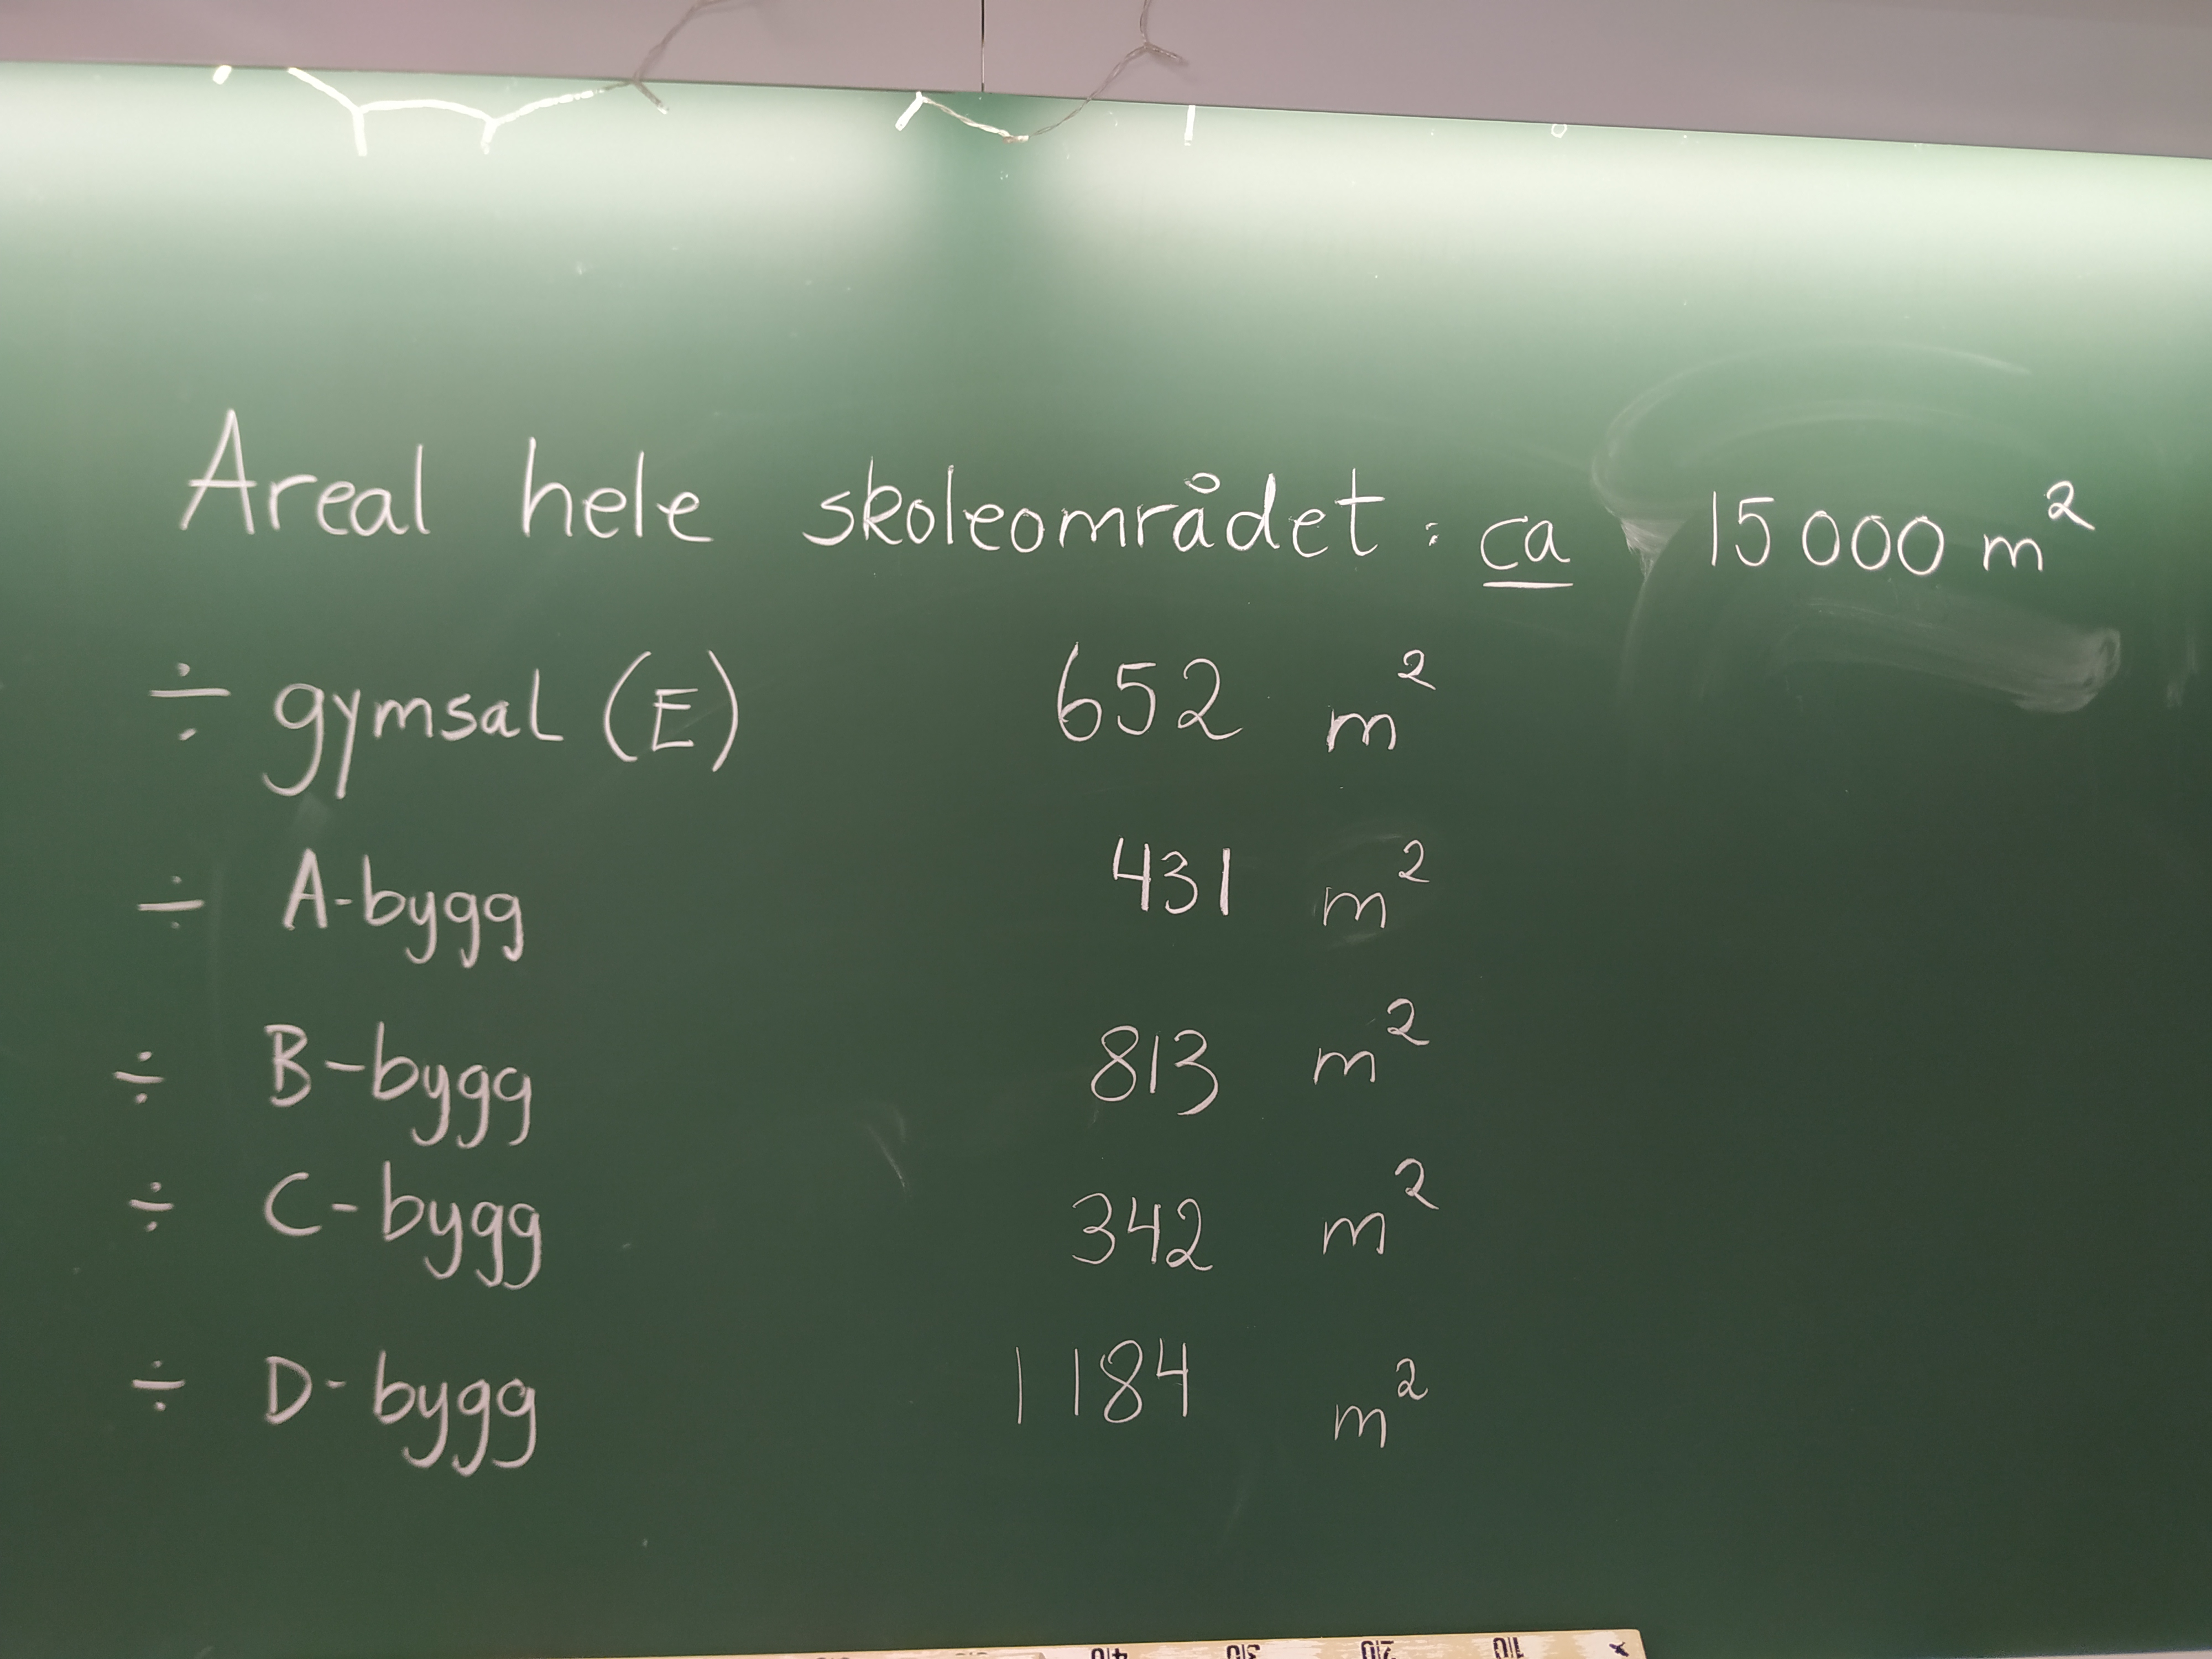 Areal hele skoleområdet: ca 15 000 m²
÷ gymsal (E) 652 m²
÷ A-bygg 431 m²
÷ B-bygg 813 m²
÷ C-bygg 342 m²
÷ D-bygg 1 184 m²
40 30 20 10